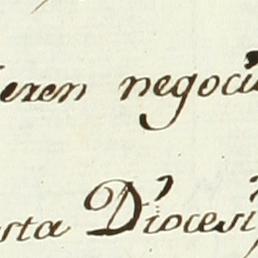 ieren negoci
sta Diocesi